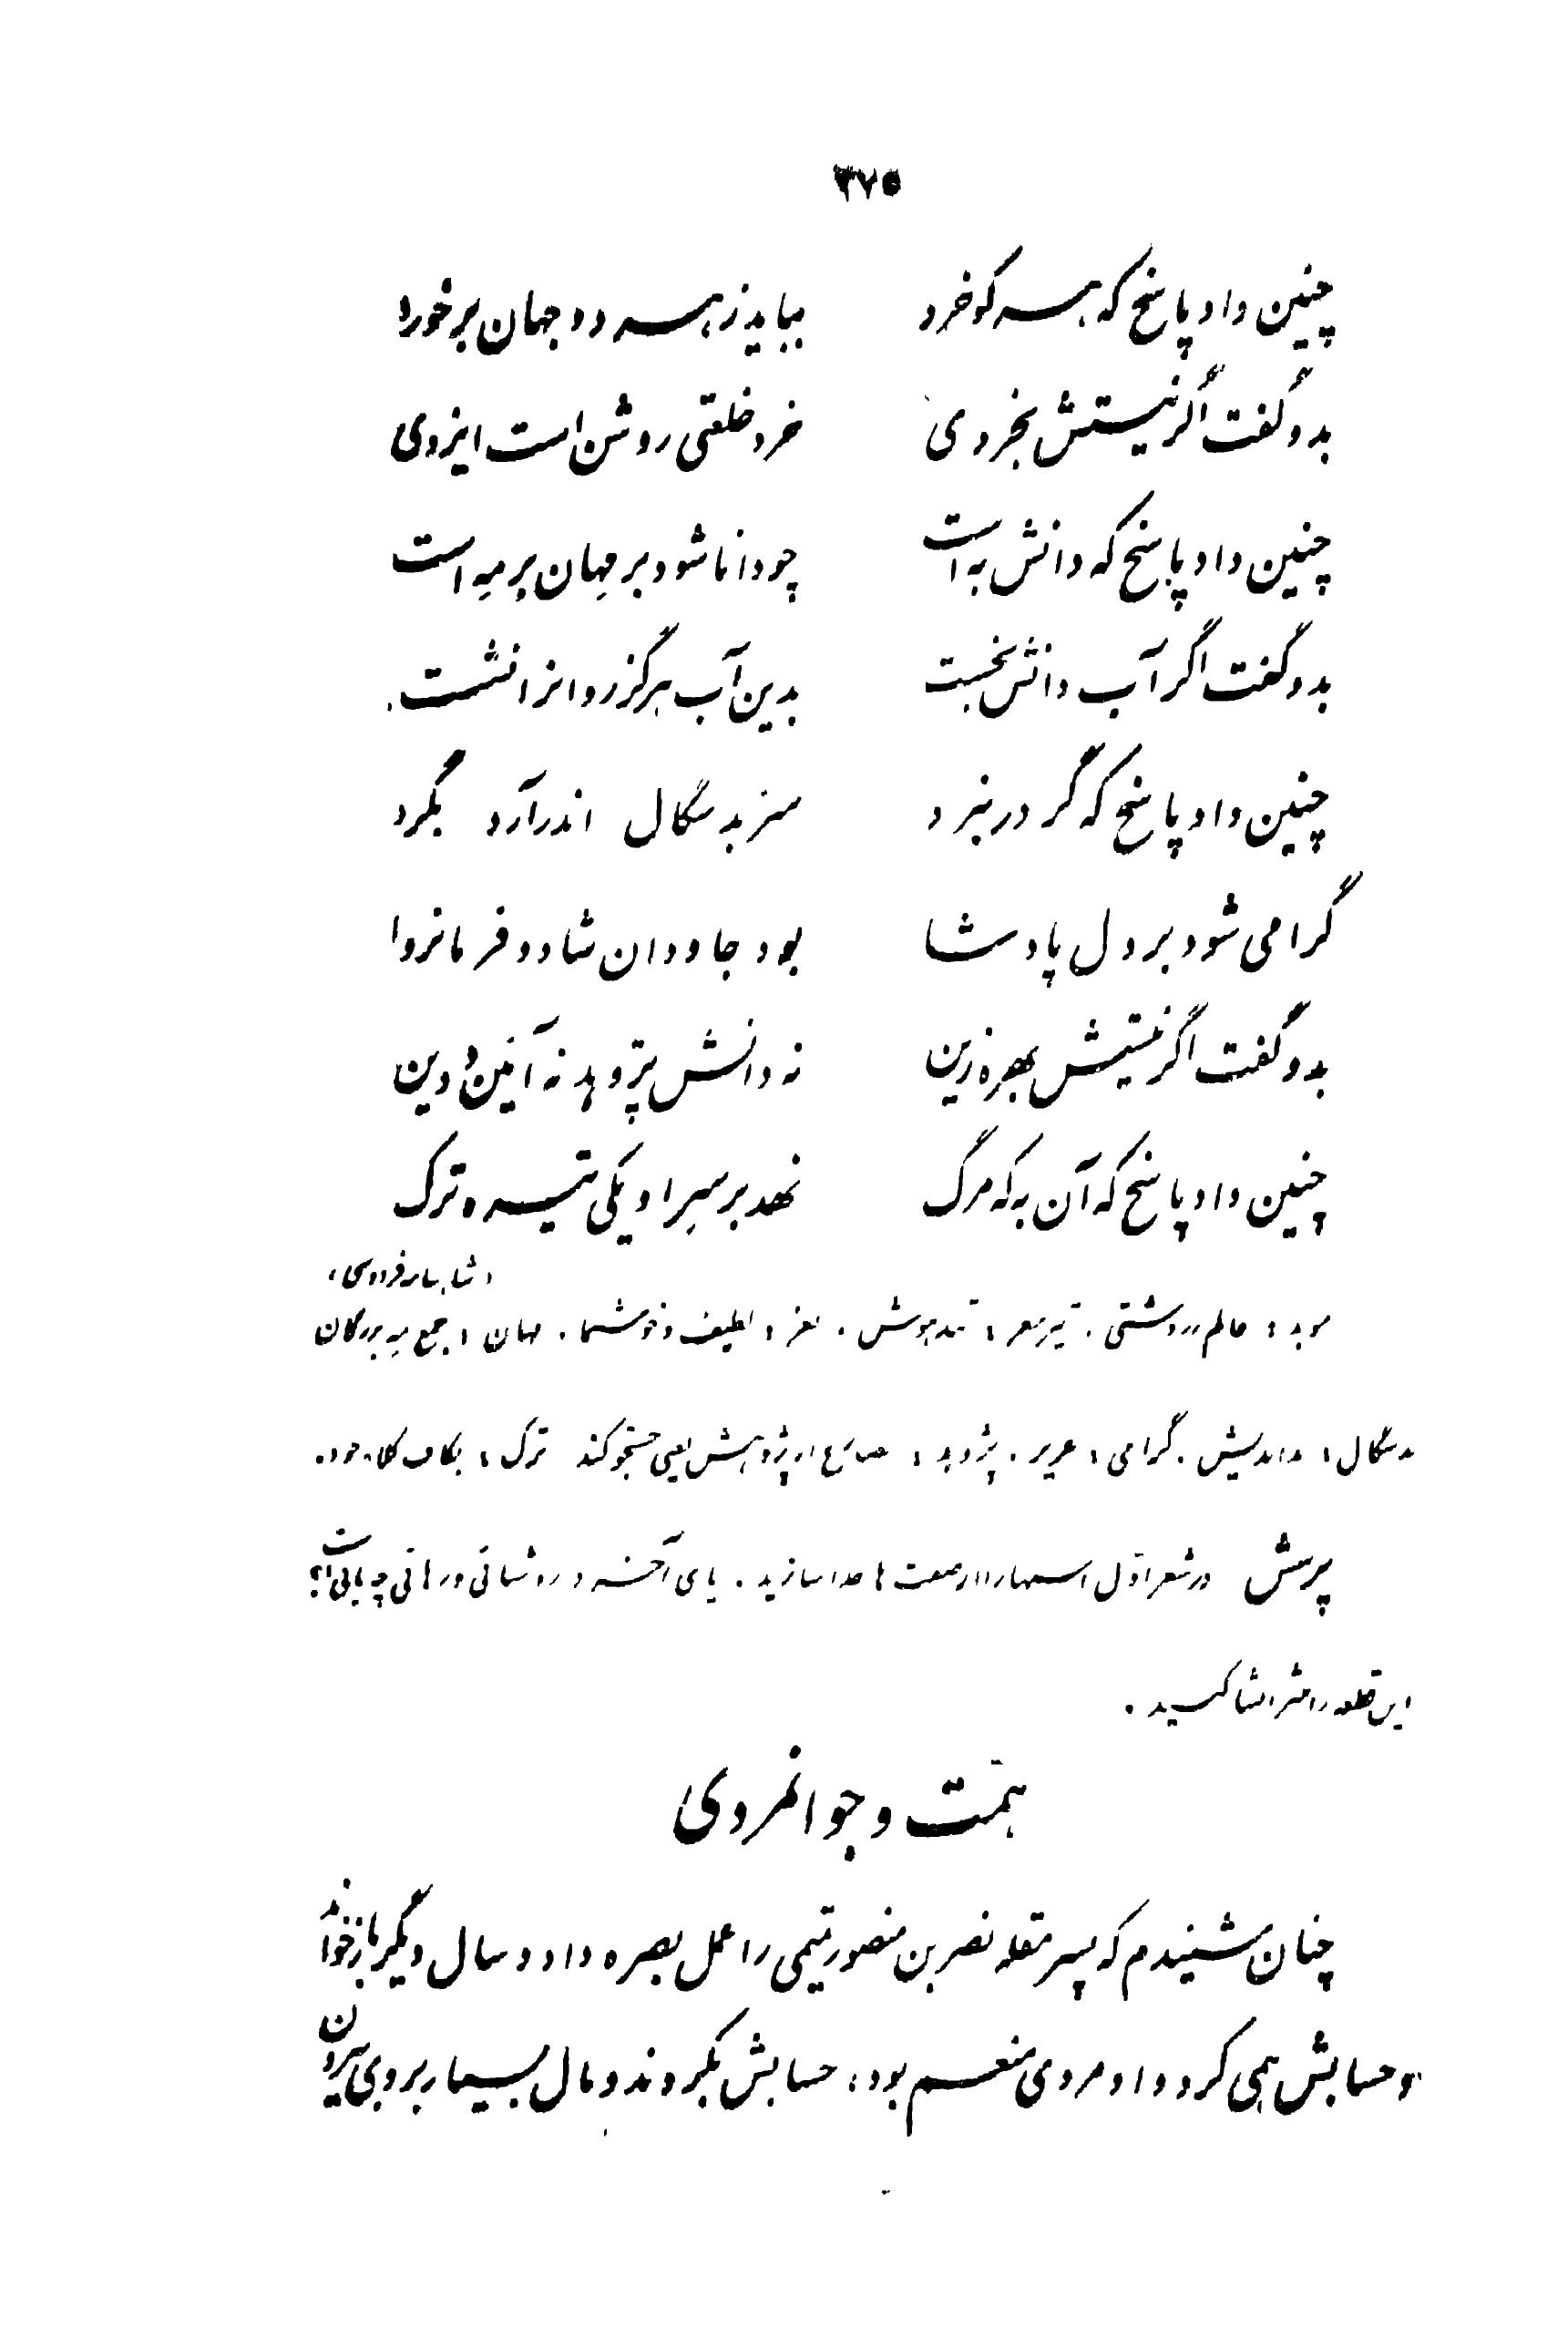 ۲۷۵
چنین داد پاسخ که هر کو خرد بیابد ز هر دو جهان برخورد
بدو گفت اگر نیستش بخردی خرد خلعتی روشن است ایزدی
چنین داد پاسخ که دانش به است چو دانا شود بر مِهان بر مِه است
بدو گفت اگر آب دانش نجست بدین آب هرگز روانرا نشست
چنین داد پاسخ که گر در نبرد سر بدسگال اندر آرد بگرد
گرامی شود بر دل پادشا بود جاودان شاد و فرمانروا
بدو گفت اگر نیستش بهره زین نه دانش پژوهد نه آئین و دین
چنین داد پاسخ که آن به که مرگ نهد بر سرِ او یکی تیره ترگ
(شاهنامه فردوسی)
موبد: عالم زردشتی. تیزمغز: تندهوش. نغز: لطیف و خوشنما. مهان: جمع مِه بزرگان
بدسگال: بداندیش. گرامی: عزیز. پژوهد: مضارع از پژوهش یعنی جستجو کند ترگ: بکاف کلاه خود.
پرسش در شعر اوّل اسمها را از صفت ها جدا سازید. یای آخر و روشنائی و رهائی چه یائی است؟
این قطعه را نثر انشا کنید.
همّت و جوانمردی
چنان شنیدم که پسر مقله نصر بن منصور تمیمی را عمل بصره داد و سال دیگر باز خواند
و حسابش همی کرد و او مردی منعم بود، حسابش بکردند و مال بسیار بر وی بیرون